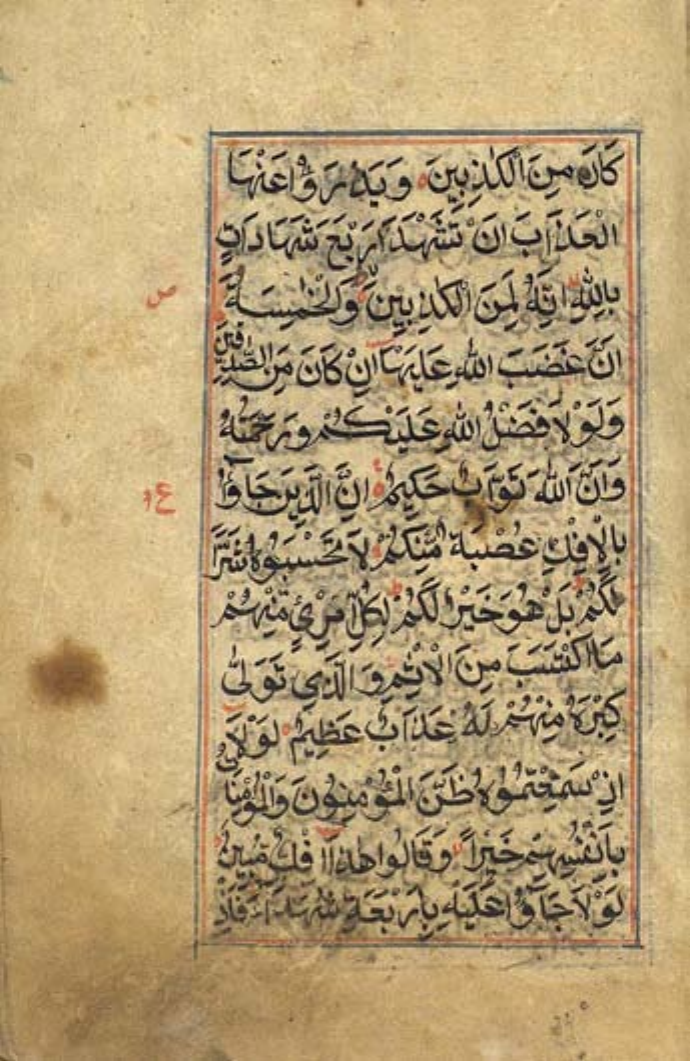 كَانَ مِنَ الْكٰذِبِينَ وَيَدْرَؤُا عَنْهَا
الْعَذَابَ اَنْ تَشْهَدَ اَرْبَعَ شَهَادَاتٍ
بِاللّٰهِ اِنَّهُ لَمِنَ الْكٰذِبِينَ وَالْخَمِسَةَ
ص
اَنَّ غَضَبَ اللّٰهِ عَلَيْهَا اِنْ كَانَ مِنَ الصّٰدِقِينَ
وَلَوْلَا فَضْلُ اللّٰهِ عَلَيْكُمْ وَرَحْمَتُهُ
وَاَنَّ اللّٰهَ تَوَّابٌ حَكِيمٌ اِنَّ الَّذِينَ جَاؤُا
ع
بِالْاِفْكِ عُصْبَةٌ مِّنْكُمْ لَا تَحْسَبُوهُ شَرًّا
لَّكُمْ بَلْ هُوَ خَيْرٌ لَّكُمْ لِكُلِّ امْرِئٍ مِّنْهُمْ
مَا اكْتَسَبَ مِنَ الْاِثْمِ وَالَّذِي تَوَلّٰى
كِبْرَهُ مِنْهُمْ لَهُ عَذَابٌ عَظِيمٌ لَوْلَا
اِذْ سَمِعْتُمُوهُ ظَنَّ الْمُؤْمِنُونَ وَالْمُؤْمِنَاتُ
بِاَنْفُسِهِمْ خَيْرًا وَّقَالُوا هٰذَا اِفْكٌ مُّبِينٌ
لَوْلَا جَاؤُا عَلَيْهِ بِاَرْبَعَةِ شُهَدَاءَ فَاِذْ